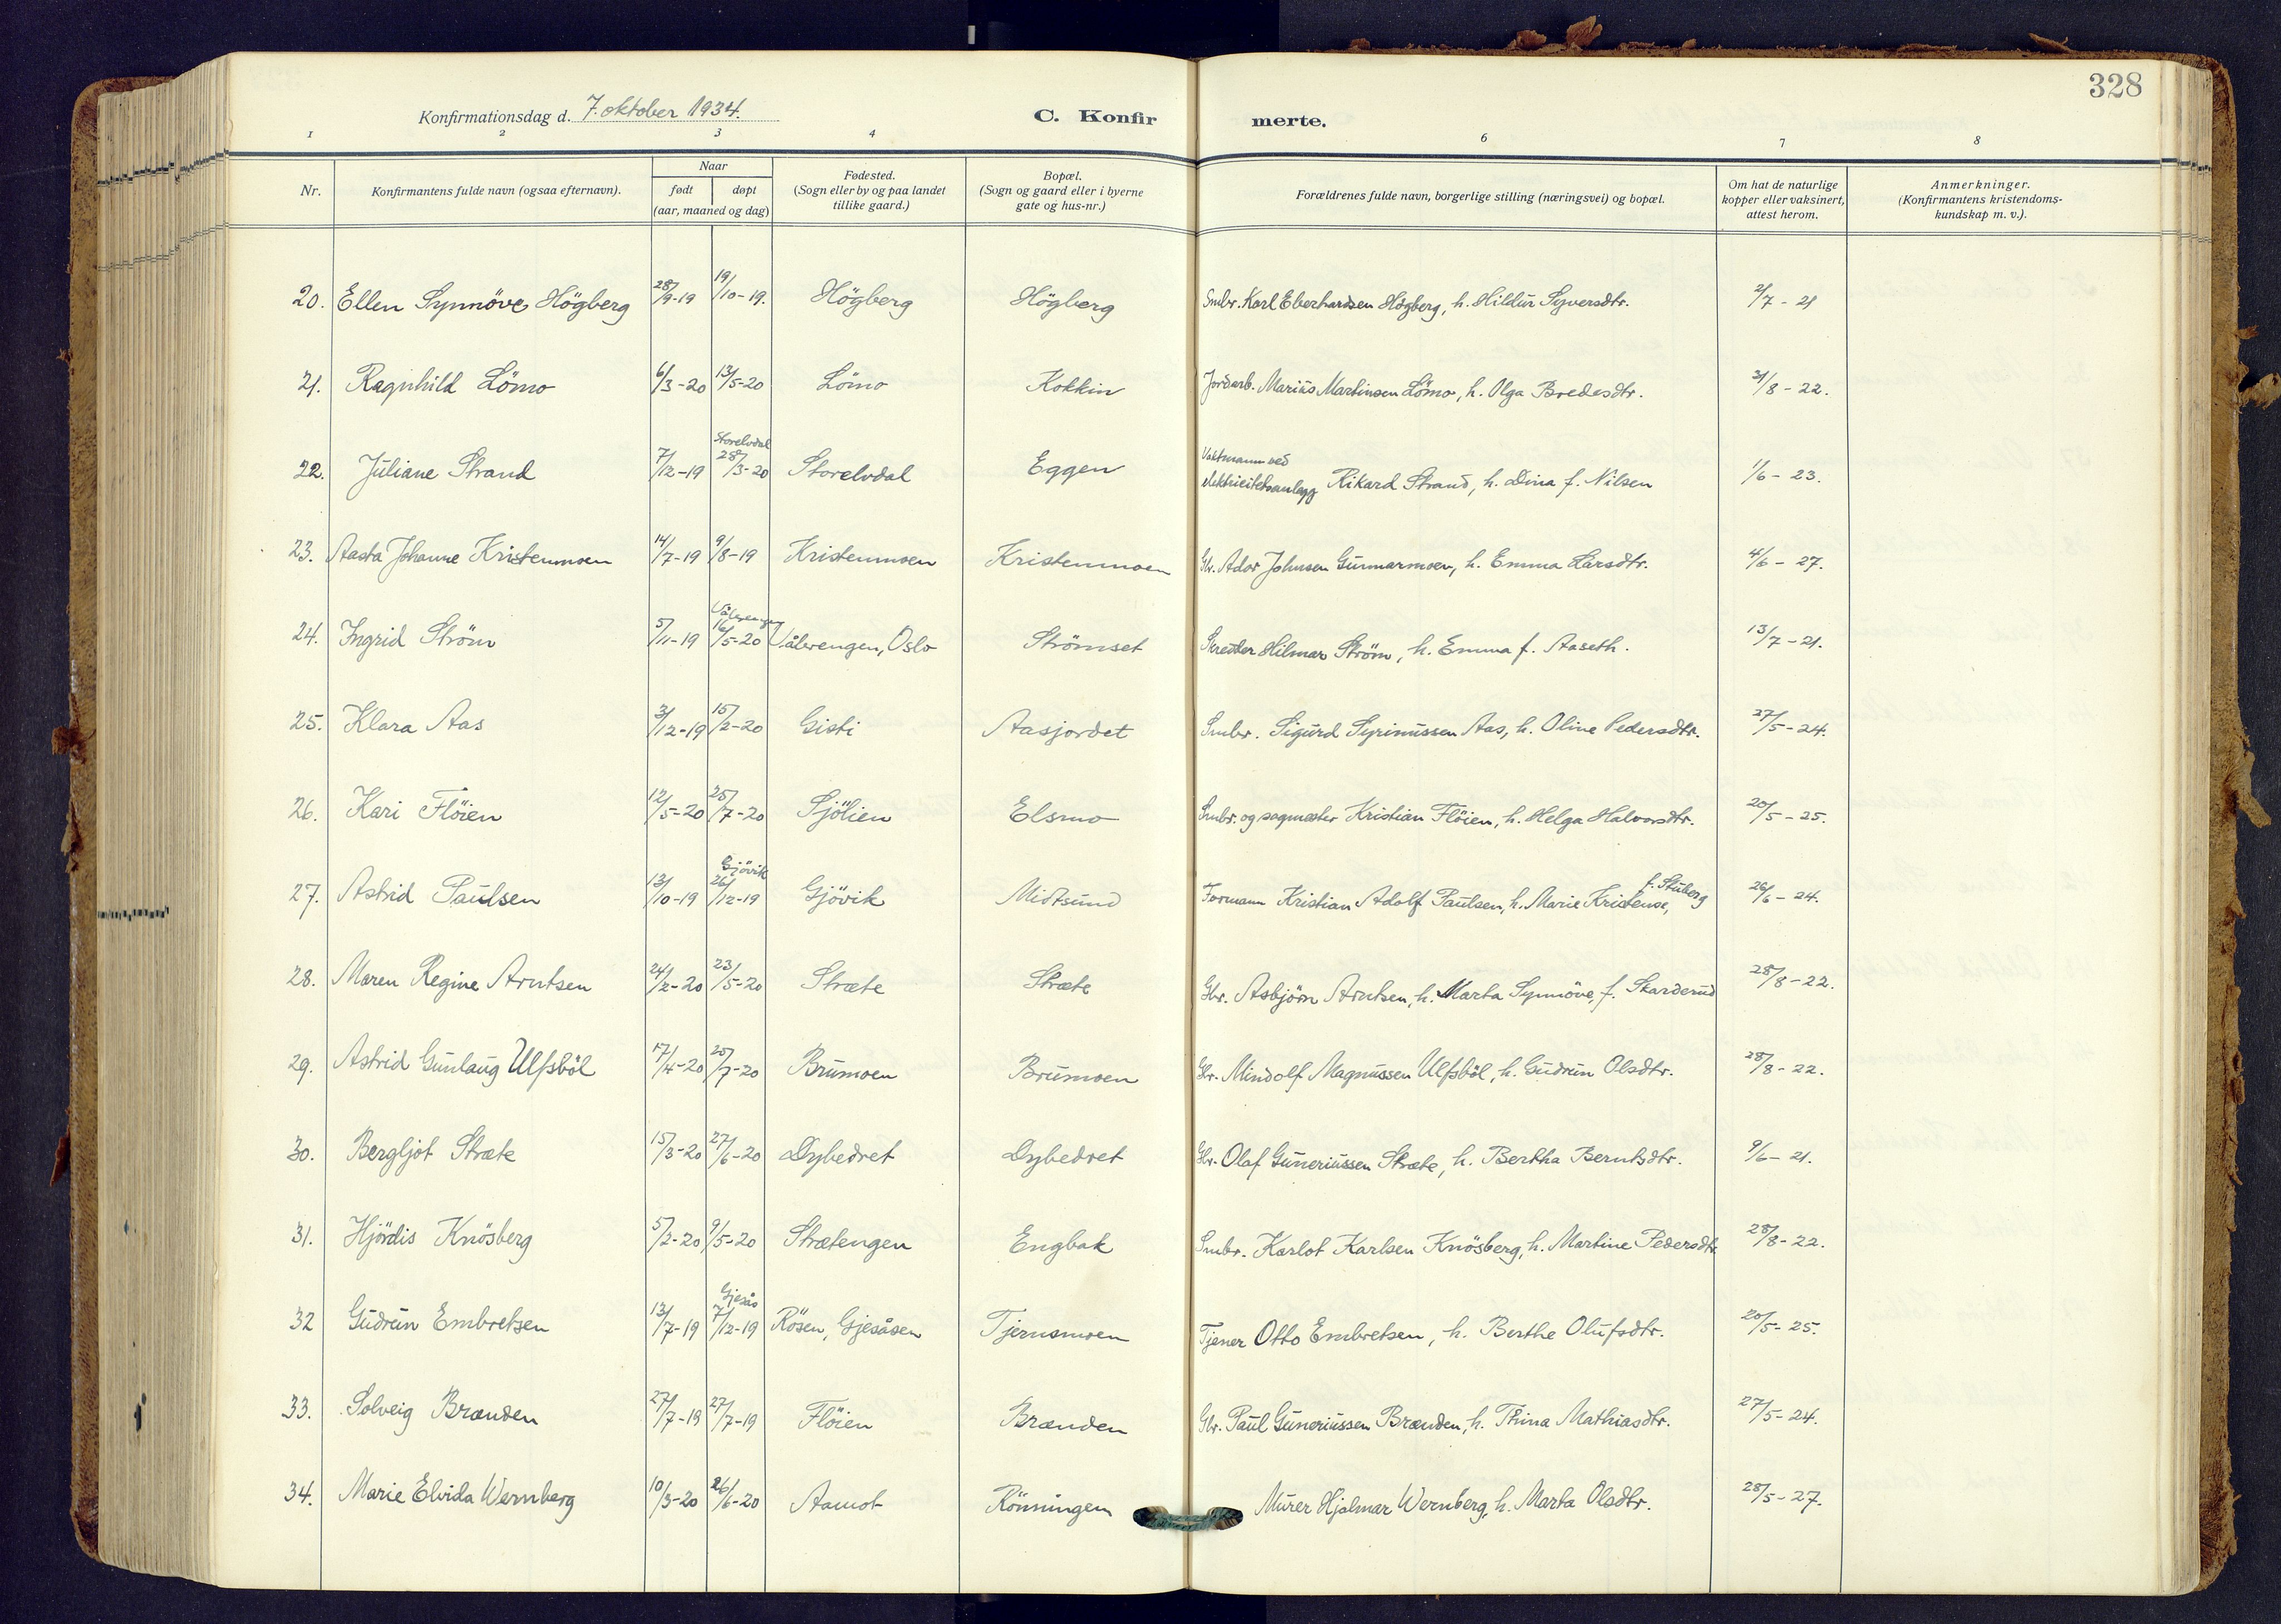 328
Konfirmationsdag d. 7. oktober 1934.
C. Konfirmerte.
1 2 3 4 6 7 8
Nr.
Konfirmantens fulde navn (ogsaa efternavn).
Naar
født døpt
(aar, maaned og dag)
Fødested.
(Sogn eller by og paa landet
tillike gaard.)
Bopæl.
(Sogn og gaard eller i byerne
gate og hus-nr.)
Forældrenes fulde navn, borgerlige stilling (næringsvei) og bopæl.
Om hat de naturlige
kopper eller vaksinert,
attest herom.
Anmerkninger.
(Konfirmantens kristendoms-
kundskap m. v.).
20. Ellen Synnöve Högberg 28/9-19 19/10-19. Högberg Högberg Smbr. Karl Eberhardsen Högberg, h. Hildur Syversdtr. 2/7-21
21. Ragnhild Lömo 6/3-20 13/5-20 Lömo Kokkin Jordarb. Marius Martinsen Lömo, h. Olga Bredesdtr. 31/8-22.
Storelvdal
22. Juliane Strand 7/12-19 28/3-20 Storelvdal Eggen Vaktmann ved
elektricitetsanlegg Rikard Strand, h. Dina f. Nilsen 1/6-23.
23. Aasta Johanne Kristenmoen 14/7-19 9/8-19 Kristenmoen Kristenmoen Gbr. Ador Johnsen Gunnarmoen, h. Emma Larsdtr. 4/6-27.
Vålerengen
24. Ingrid Ström 5/11-19 16/5-20 Vålerengen, Oslo Strömset Skredder Hilmar Ström, h. Emma f. Aaseth. 13/7-21.
25. Klara Aas 3/12-19 15/2-20 Gisti Aasjordet Smbr. Sigurd Syrinussen Aas, h. Oline Pedersdtr. 27/5-24.
26. Kari Flöien 12/5-20 25/7-20 Sjölien Elsmo Smbr. og sagmester Kristian Flöien, h. Helga Halvorsdtr. 20/5-25.
Gjövik
27. Astrid Paulsen 13/10-19 26/12-19 Gjövik Midtsund Formann Kristian Adolf Paulsen, h. Marie Kristense, f. Stuberg 26/6-24.
28. Maren Regine Arntsen 24/2-20 23/5-20 Stræte Stræte Gbr. Asbjörn Arntsen, h. Marta Synnöve, f. Skarderud 28/8-22.
29. Astrid Gunlaug Ulfsböl 17/4-20 25/7-20 Brumoen Brumoen Gbr. Mindolf Magnussen Ulfsböl, h. Gudrun Olsdtr. 28/8-22.
30. Bergljot Stræte 15/3-20 27/6-20 Dybedret Dybedret Gbr. Olaf Guneriussen Stræte, h. Bertha Berntsdtr. 9/6-21.
31. Hjördis Knösberg 5/2-20 9/5-20 Strætengen Engbak Smbr. Karlot Karlsen Knösberg, h. Martine Pedersdtr. 28/8-22.
Gjesås
32 Gudrun Embretsen 13/7-19 7/12-19 Rösen, Gjesåsen Tjernsmoen Tjener Otto Embretsen, h. Berthe Olufsdtr. 20/5-25.
33. Solveig Brænden 27/7-19 27/7-19 Flöien Brænden Gbr. Paul Guneriussen Brænden, h. Thina Mathiasdtr. 27/5-24.
34. Marie Elvida Wernberg 10/3-20 26/6-20 Aamot Rönningen Murer Hjalmar Wernberg, h. Marta Olsdtr. 28/5-27.